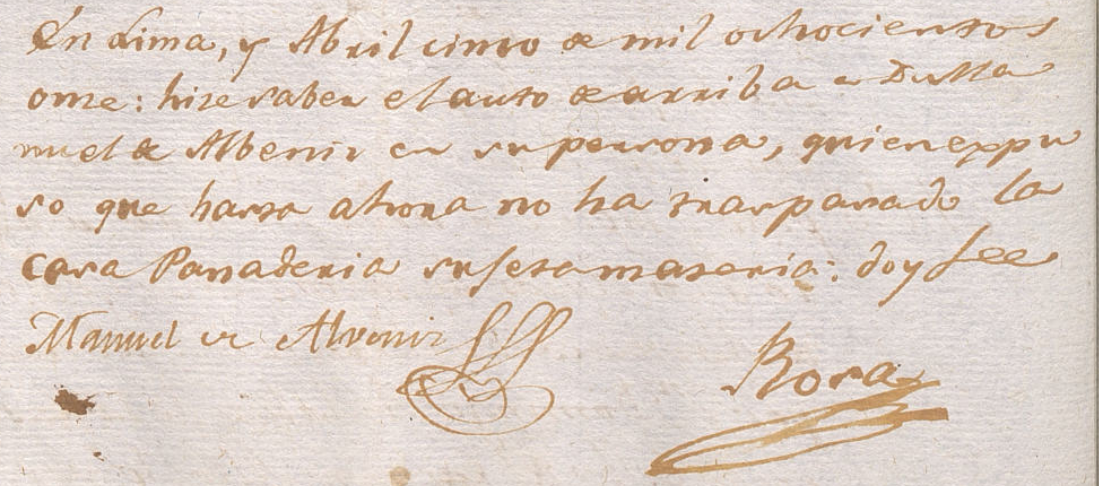 En Lima, y Abril cinco de mil ochocientos
onse: hise saber el auto de arriba a Dn Ma
nuel de Albenir en su persona, quien expu
so que hasta ahora no ha traspasado la
casa Panaderia sujeta materia: doy fee
Manuel de Alvenir
Rosa